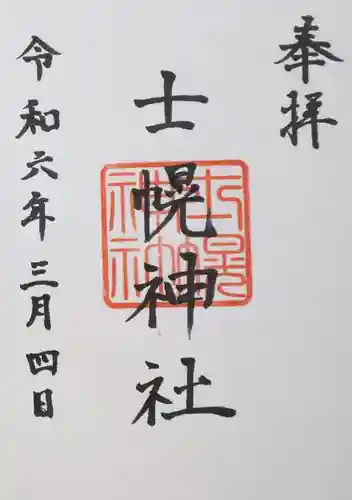 奉拝
士幌神社
令和六年三月四日
士幌神社